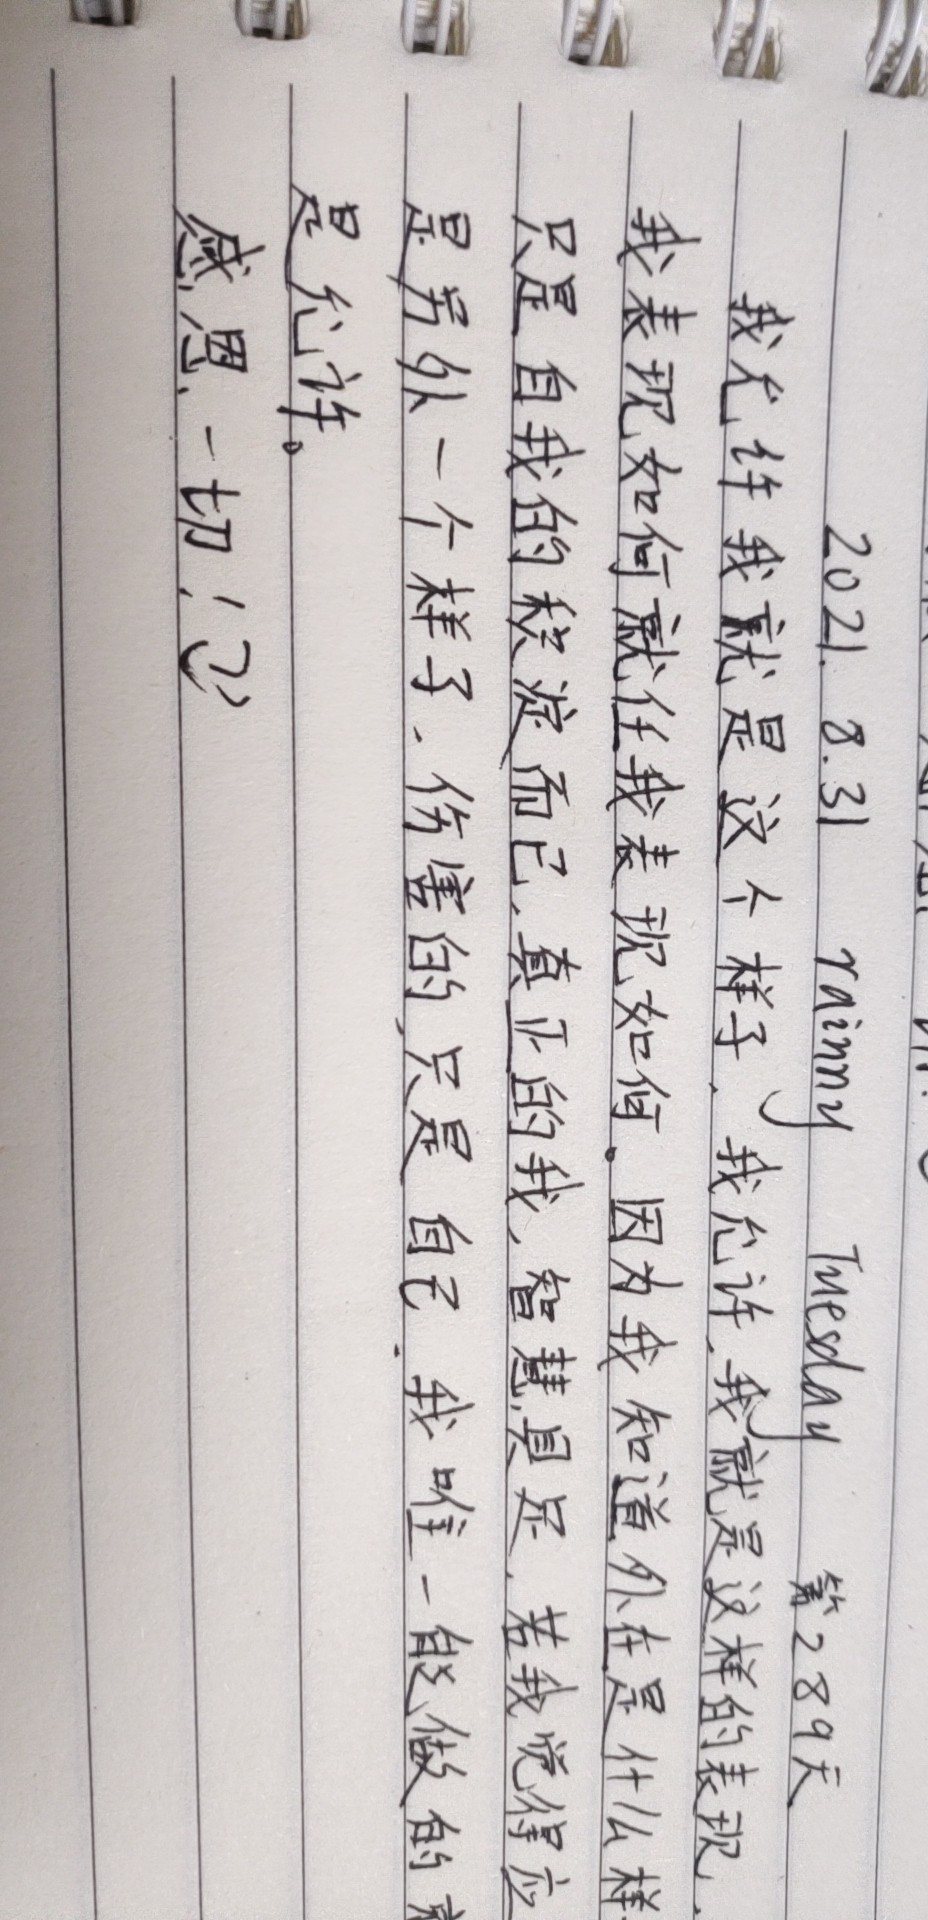 2021.8.31 rainny Tuesday 第289天
我允许我就是这个样子、我允许、我就是这样的表现、
我表现如何就任我表现如何。因为我知道外在是什么样
只是自我的积淀而已、真正的我、智慧具足、若我觉得应
是另外一个样子、伤害的、只是自己、我唯一能做的
是允许。
感恩一切！